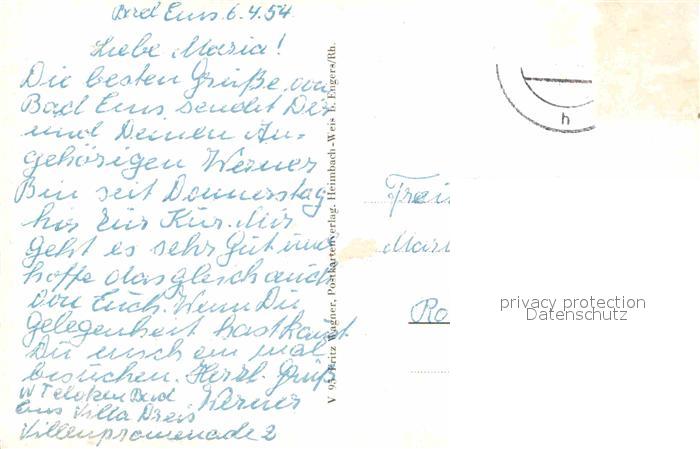 Bad Ems. 6.4.54
Liebe Maria!
Die besten Grüße von
Bad Ems sendet Dir
und Deinen An-
gehörigen Werner
Bin seit Donnerstag
hir zur Kur. Mir
geht es sehr gut und
hoffe das gleich auch
von Euch. Wenn Du
gelegenheit hast kanst
Du mich ein mal
besuchen. Herzl. Grüße
Werner
W Bad
Ems Villa Dreis
Villenpromenade 2
V 95 Fritz Wagner, Postkartenverlag, Heimbach-Weis b. Engers/Rh.
h
Frei
Mar
Ro
privacy protection
Datenschutz